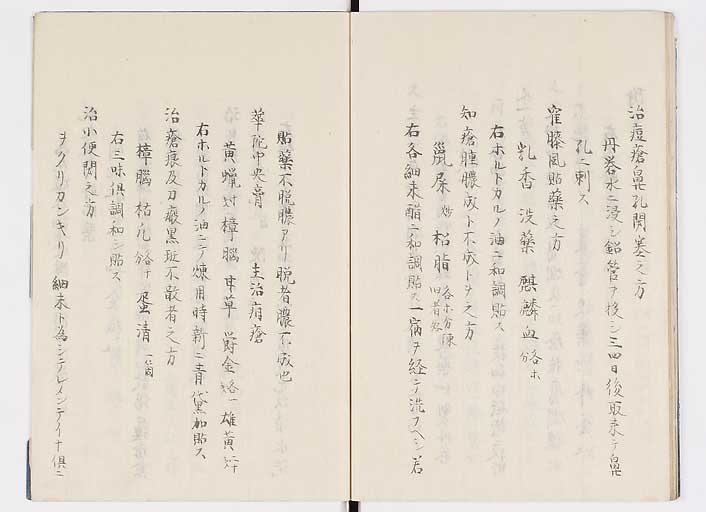 治痘瘡鼻孔閉塞之方
丹礬水ニ浸シ鉛管ヲ挾シ三四日後取来テ鼻
孔ニ刺ス
寉膝風貼藥之方
乳香 没藥 麒麟血 各ホ
右ホルトカルノ油ニ和調貼ス
知瘡腫膿成ト不成トヲ之方
鼠屎 炒 松脂 各ホ分煉
右各細末醋ニ和調貼ス一宿ヲ経テ洗フヘシ若
貼藥不脱膿アリ脱者膿不成也
華陀中央膏 主治肩瘡
黄蠟 樟腦 甘草 欝金 雄黄
右ホルトカルノ油ニテ煉用時新ニ青黛加貼ス
治瘡痕及刀瘢黒斑不散者之方
樟腦 枯凡 各ホ 蛋清 一箇
右三味倶調和シ貼ス
治小便閉之方
ヲクリカンキリ 細末ト為シテレメンテイナ倶ニ